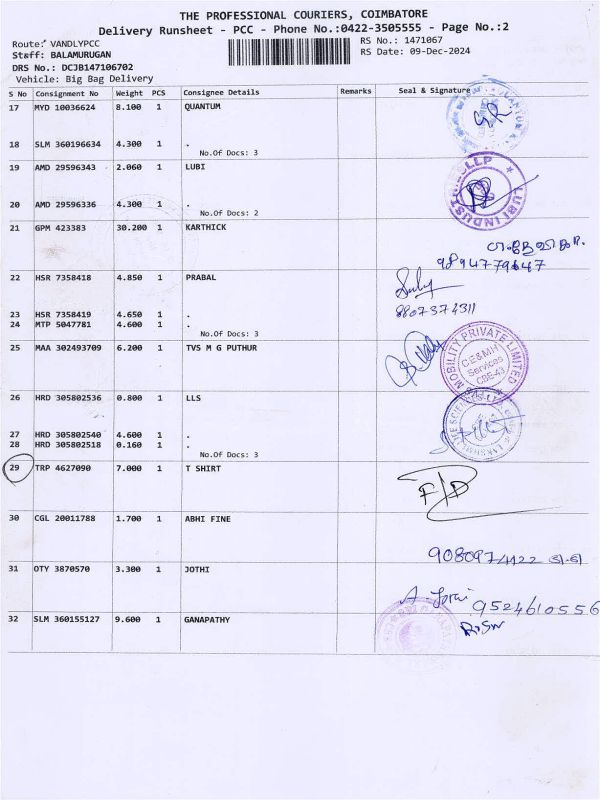 THE PROFESSIONAL COURIERS, COIMBATORE
Delivery Runsheet - PCC - Phone No.:0422-3505555 - Page No.:2
Route: VANDLYPCC
RS No.: 1471067
Staff: BALAMURUGAN
RS Date: 09-Dec-2024
DRS No.: DCJB147106702
Vehicle: Big Bag Delivery
S No Consignment No Weight PCS Consignee Details Remarks Seal & Signature
17 MYD 10036624 8.100 1 QUANTUM
18 SLM 360196634 4.300 1 .
No.Of Docs: 3
19 AMD 29596343 2.060 1 LUBI
LUBI INDUSTRIES LLP
20 AMD 29596336 4.300 1 .
No.Of Docs: 2
21 GPM 423383 30.200 1 KARTHICK
22 HSR 7358418 4.850 1 PRABAL
8807374311
23 HSR 7358419 4.650 1 .
24 MTP 5047781 4.600 1 .
No.Of Docs: 3
25 MAA 302493709 6.200 1 TVS M G PUTHUR
MOBILITY PRIVATE LIMITED
CE&MH
Services
CBE-43
26 HRD 305802536 0.800 1 LLS
27 HRD 305802540 4.600 1 .
28 HRD 305802518 0.160 1 .
No.Of Docs: 3
29 TRP 4627090 7.000 1 T SHIRT
F/D
30 CGL 20011788 1.700 1 ABHI FINE
31 OTY 3870570 3.300 1 JOTHI
9524610556
32 SLM 360155127 9.600 1 GANAPATHY